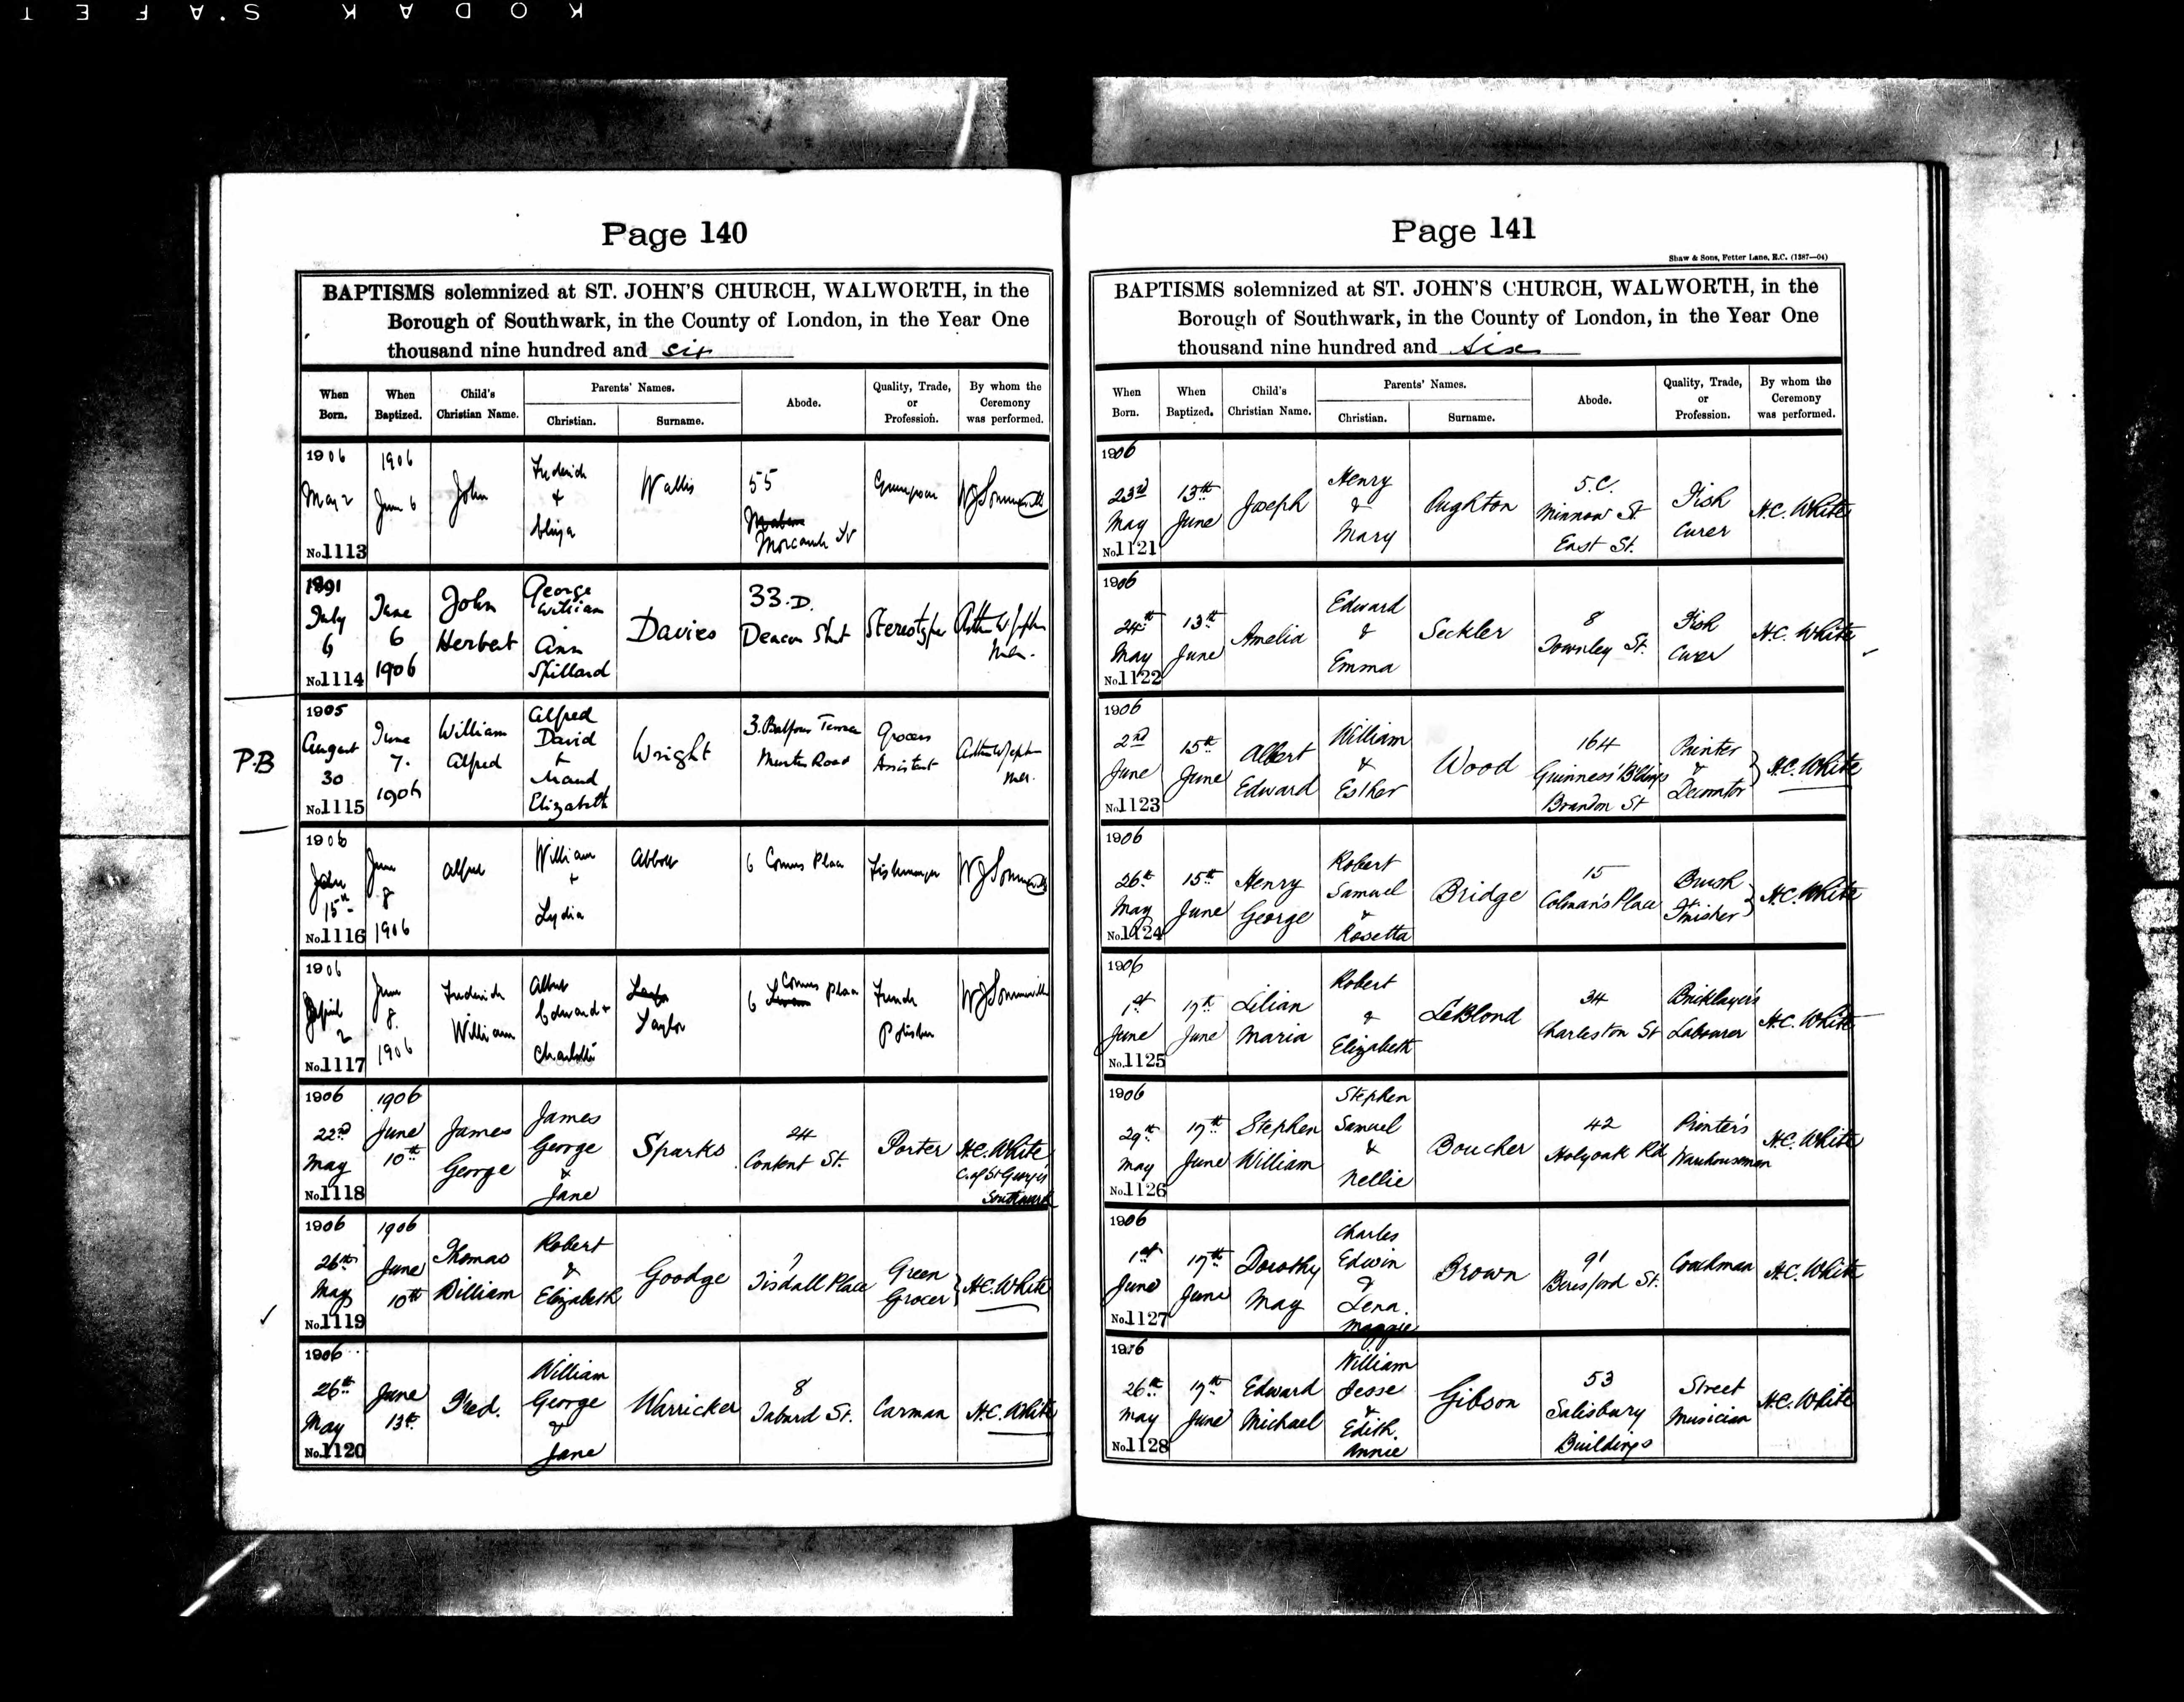 KODAK S'AFET
Page 140
BAPTISMS solemnized at ST. JOHN'S CHURCH, WALWORTH, in the
Borough of Southwark, in the County of London, in the Year One
thousand nine hundred and six
When Born.
When Baptized.
Child's Christian Name.
Parents' Names.
Christian.
Surname.
Abode.
Quality, Trade, or Profession.
By whom the Ceremony was performed.
1906
May 2
No. 1113
1906
June 6
John
Frederick
&
Eliza
Wallis
55
Morcambe St
W J Sommerville
1891
July
6
No. 1114
June
6
1906
John
Herbert
George
William
Ann
Spillard
Davies
33. D.
Deacon Street
Stereotyper
P.B
1905
August
30
No. 1115
June
7.
1906
William
Alfred
Alfred
David
+
Maud
Elizabeth
Wright
3. Balfour Terrace
Road
Grocers
Assistant
1906
15th
No. 1116
June
8
1906
Alfred
William
+
Lydia
Abbott
6 Comus Place
Fishmonger
W J Sommerville
1906
April
2
No. 1117
June
8.
1906
Frederick
William
Albert
Edward +
Charlotte
Taylor
6 Comus Place
French
Polisher
W J Sommerville
1906
22nd
May
No. 1118
1906
June
10th
James
George
James
George
&
Jane
Sparks
24
Content St.
Porter
H.C. White
C. of St George's
Southwark
1906
26th
May
No. 1119
1906
June
10th
Thomas
William
Robert
&
Elizabeth
Goodge
7
Tisdall Place
Green
Grocer
H.C. White
1906
26th
May
No. 1120
June
13th
Fred.
William
George
&
Jane
Warricker
8
Tabard St.
Carman
H.C. White
Page 141
Shaw & Sons, Fetter Lane, E.C. (1387—04)
BAPTISMS solemnized at ST. JOHN'S CHURCH, WALWORTH, in the
Borough of Southwark, in the County of London, in the Year One
thousand nine hundred and six
When Born.
When Baptized.
Child's Christian Name.
Parents' Names.
Christian.
Surname.
Abode.
Quality, Trade, or Profession.
By whom the Ceremony was performed.
1906
23rd
May
No. 1121
13th
June
Joseph
Henry
&
Mary
Pughton
5.C.
Minnow St.
East St.
Fish
Curer
H.C. White
1906
24th
May
No. 1122
13th
June
Amelia
Edward
&
Emma
Seckler
8
Townley St.
Fish
Curer
H.C. White
1906
2nd
June
No. 1123
15th
June
Albert
Edward
William
&
Esther
Wood
164
Guinness' B'ldings
Brandon St
Painter
&
Decorator
H.C. White
1906
26th
May
No. 1124
15th
June
Henry
George
Robert
Samuel
&
Rosetta
Bridge
15
Colman's Place
Brush
Finisher
H.C. White
1906
1st
June
No. 1125
17th
June
Lilian
Maria
Robert
&
Elizabeth
LeBlond
34
Charleston St
Bricklayer's
Labourer
H.C. White
1906
29th
May
No. 1126
17th
June
Stephen
William
Stephen
Samuel
&
Nellie
Boucher
42
Holyoak Rd
Printer's
Warehouseman
H.C. White
1906
1st
June
No. 1127
17th
June
Dorothy
May
Charles
Edwin
&
Lena
Maggie
Brown
91
Beresford St.
Coachman
H.C. White
1906
26th
May
No. 1128
17th
June
Edward
Michael
William
Jesse
&
Edith
Annie
Gibson
53
Salisbury
Buildings
Street
Musician
H.C. White